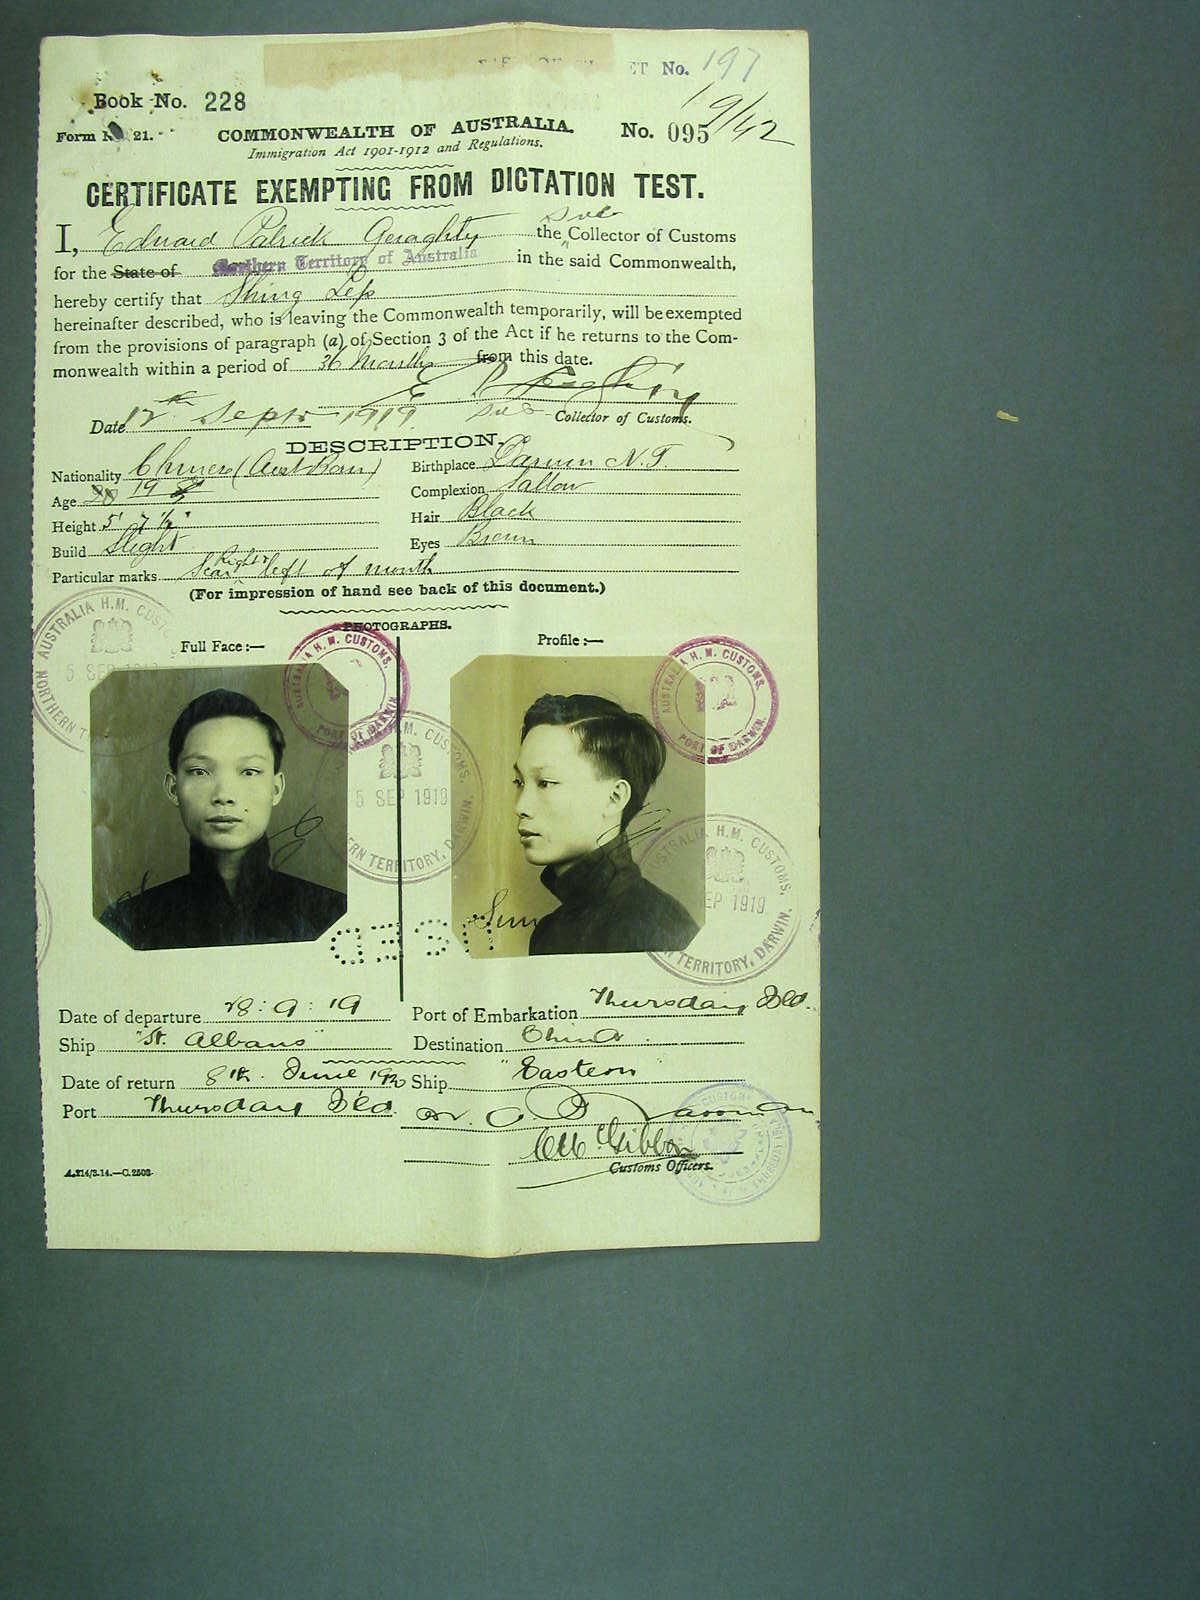 ET No. 197
Book No. 228
19/42
Form No. 21.
COMMONWEALTH OF AUSTRALIA.
No. 095
Immigration Act 1901-1912 and Regulations.
CERTIFICATE EXEMPTING FROM DICTATION TEST.
Sub
I, Edward Patrick Geraghty the Collector of Customs
for the State of Northern Territory of Australia in the said Commonwealth,
hereby certify that Shing Lep
hereinafter described, who is leaving the Commonwealth temporarily, will be exempted
from the provisions of paragraph (a) of Section 3 of the Act if he returns to the Com-
monwealth within a period of 36 Months from this date.
E P Geraghty
Date 12th Septr 1919 Sub Collector of Customs.
DESCRIPTION.
Nationality Chinese (Aust. Born) Birthplace Darwin N.T.
Age 20 19 Complexion Sallow
Height 5' 7 1/2" Hair Black
Build Slight Eyes Brown
Particular marks Scar Right left of mouth
(For impression of hand see back of this document.)
PHOTOGRAPHS.
Full Face :— Profile :—
NORTHERN AUSTRALIA H.M. CUSTOMS
5 SEP 1919
AUSTRALIA H. M. CUSTOMS.
PORT OF DARWIN
AUSTRALIA H. M. CUSTOMS.
PORT OF DARWIN.
H.M. CUSTOMS.
5 SEP 1919
TERRITORY, DARWIN.
AUSTRALIA H.M. CUSTOMS.
SEP 1919
TERRITORY, DARWIN.
Date of departure 28 : 9 : 19 Port of Embarkation Thursday Isld.
Ship "St. Albans" Destination China
Date of return 8th June 1920 Ship "Eastern
Port Thursday Isld.
Customs Officers.
A.214/3.14.—C.2503.